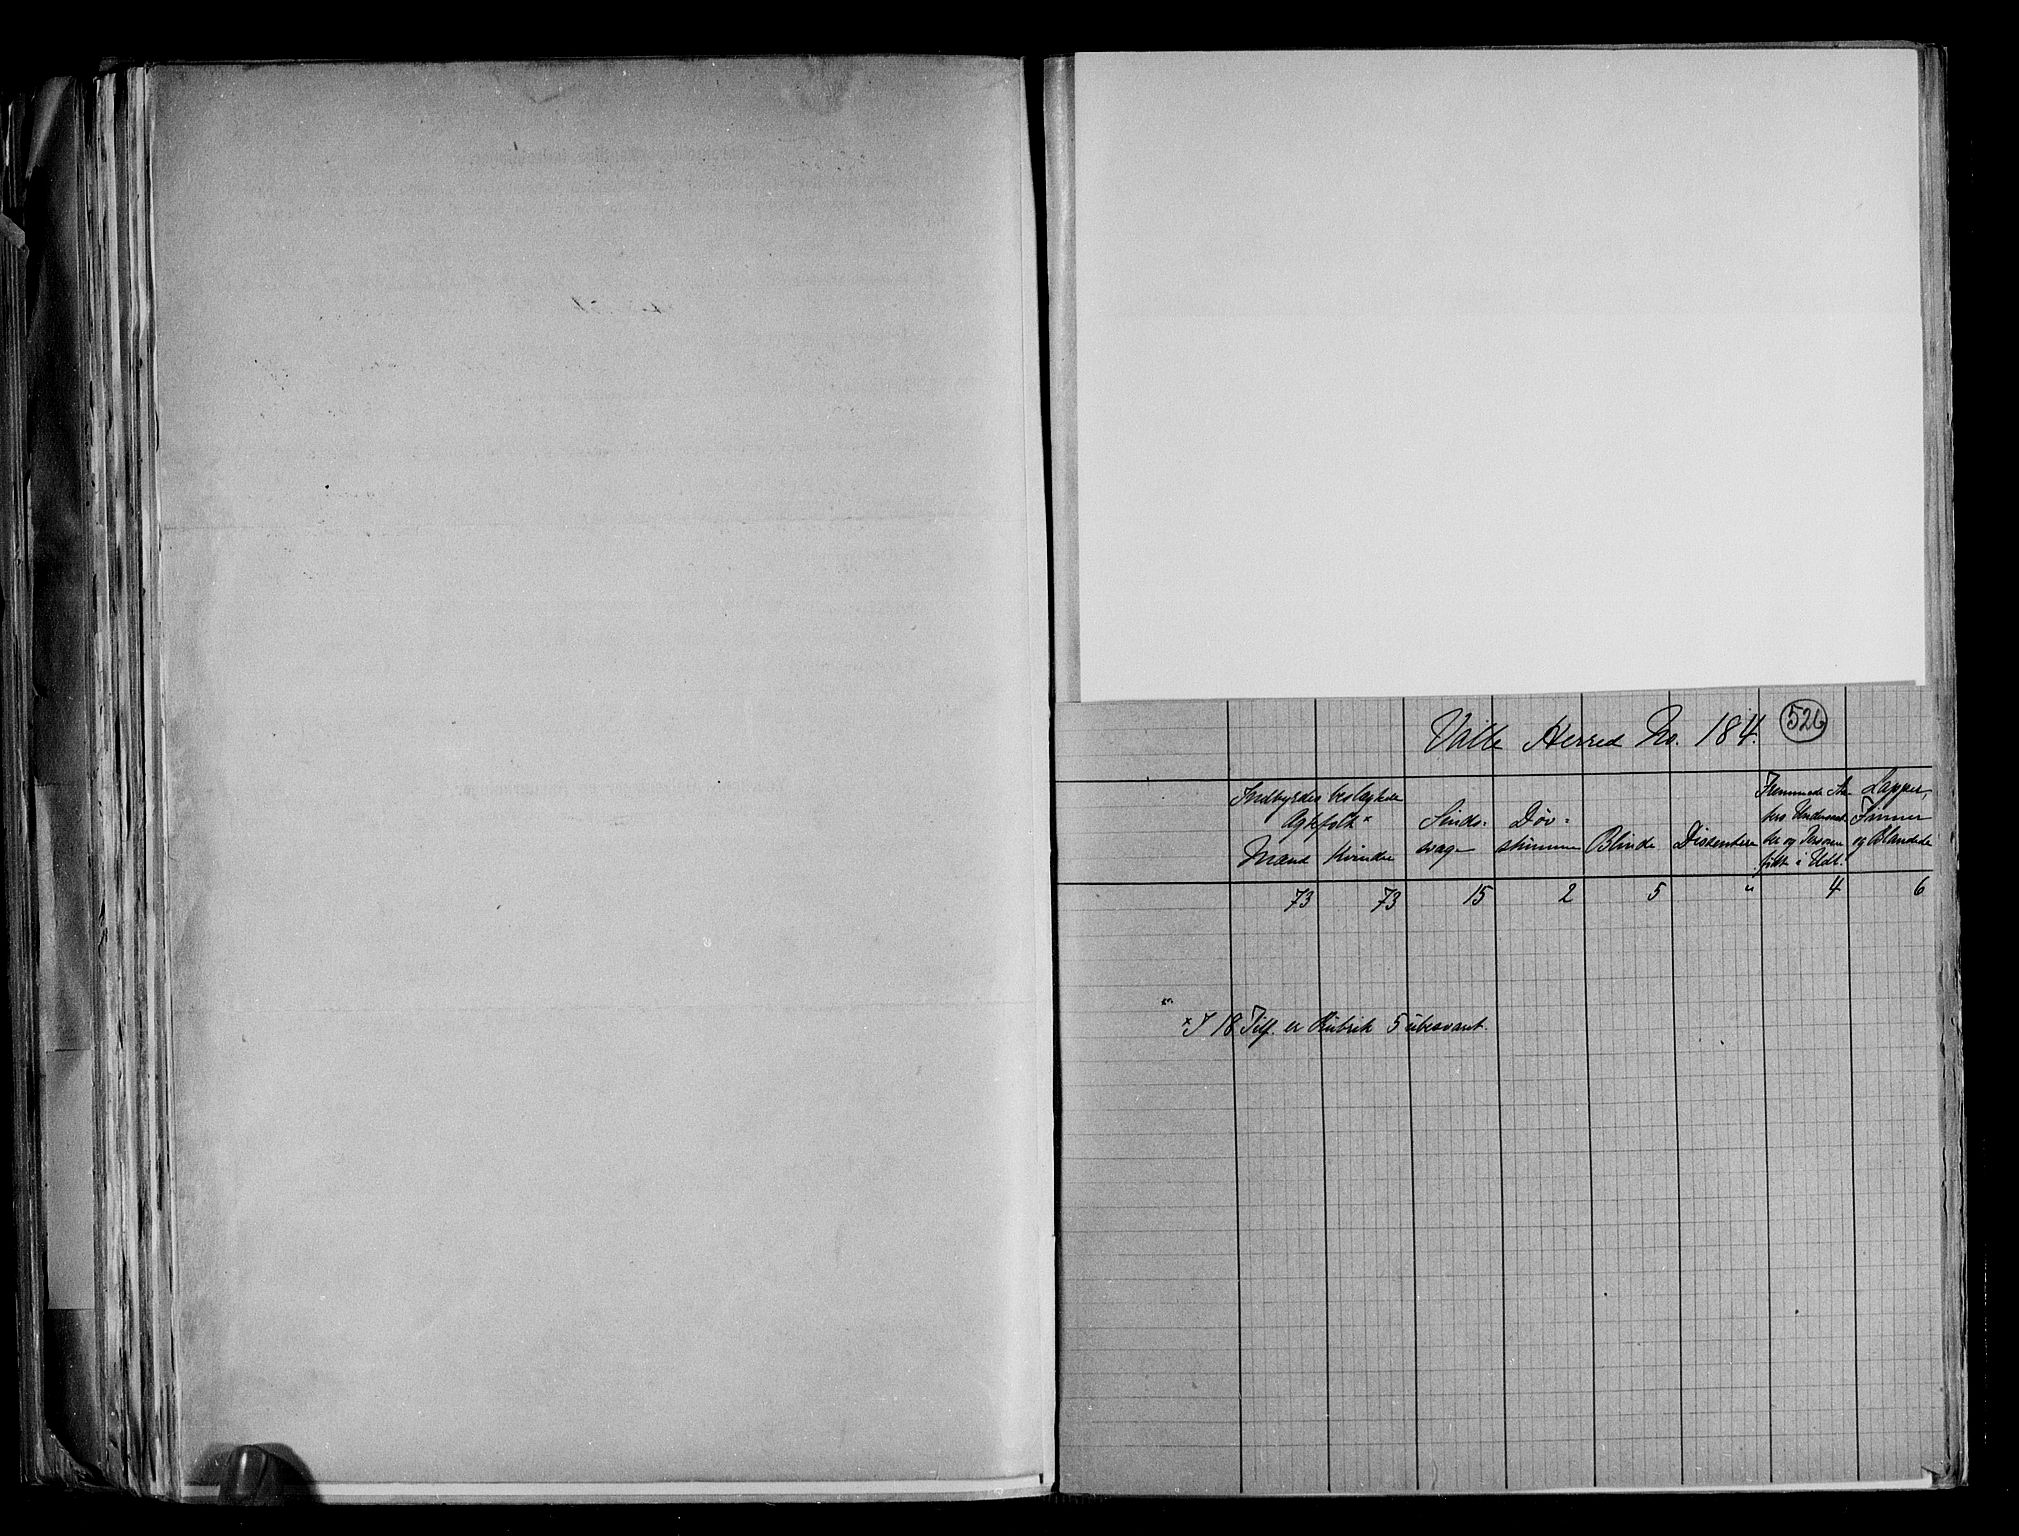 Valle Herred No. 184. 526
Indbyrdes beslægtede Ægtefolk× Mænd Kvinder
Sinds- svage
Døv- stumme
Blinde
Dissentere
Fremmede Sta- ters Undersaat- ter og Personer født i Udl.
Lapper, Finner og Blandede
73 73 15 2 5 " 4 6
× I 18 Tilf. er Rubrik 5 ubesvart.